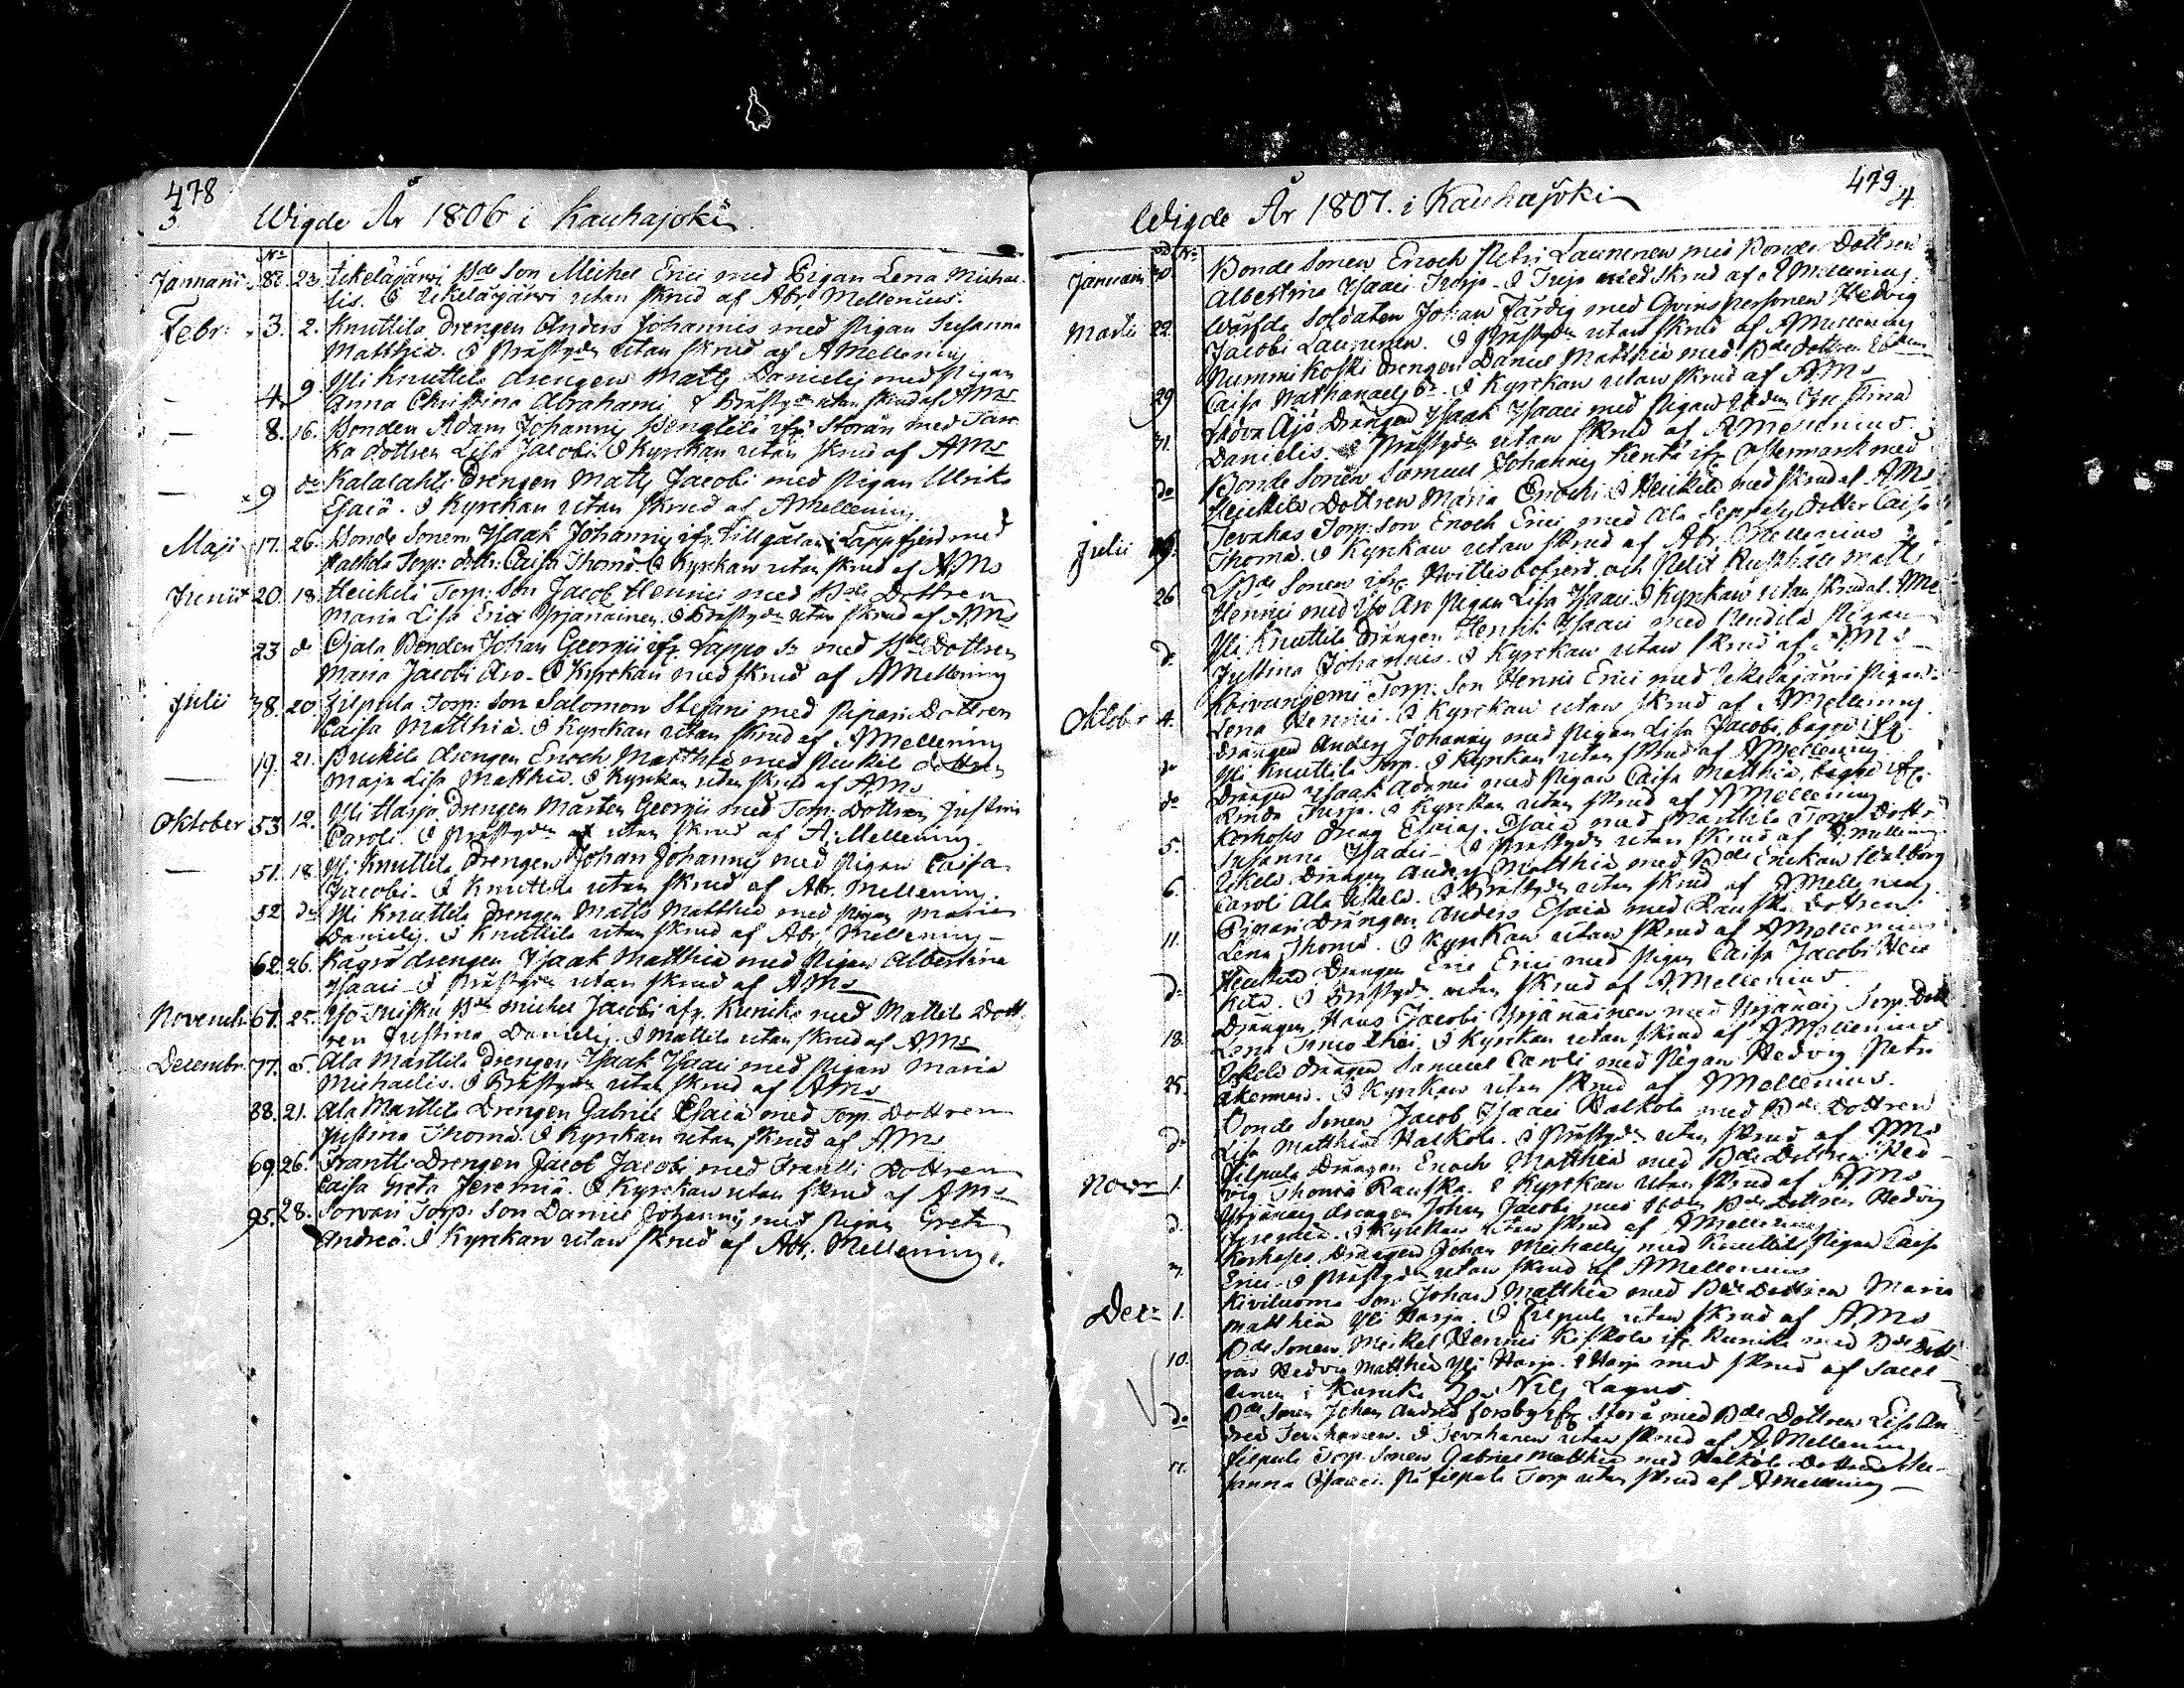 478
3
Wigde År 1806 i Kauhajoki
No
Januarii 82. 23. Ikeläjärvi Bde Son Michel Erici med Pigan Lena Michae-
lis. I Ikeläjärvi utan skrud af Abr. Mellenius.
Febr: 3. 2. Knuttila Drengen Anders Johannis med Pigan Susanna
Matthiæ. I Prästgdn utan skrud af AMellenius
4. 9 Yli Knuttila drengen Matts Danielis med Pigan
Anna Christina Abrahami I Prästgdn utan skrud af AMs
8. 16. Bonden Adam Johannis ifr Storån med
ka dottren Lisa Jacobi. I Kyrckan utan skrud af AMs
9 do Kalalahti Drengen Matts Jacobi med Pigan Ulrika
Esaiæ. I Kyrckan utan skrud af AMellenius
Maji 17. 26. Bonde Sonen Isaak Johannis ifr Lappfjerd med
Torp: dottr: Caisa Thomæ I Kyrckan utan skrud af AMs
Junii 20 18. Heickili Torp: Son Jacob Henrici med Bde Dottren
Maria Lisa Erici Yrjänäinen. I Prästgdn utan skrud af AMs
23 do Ojala Bonden Johan Georgii ifr Lappo Sn med Bde Dottren
Maria Jacobi Aro. I Kyrckan med skrud af AMellenius
Julii 38. 20 Filpula Torp: Son Salomon Stefani med Pipari Dottren
Caisa Matthiæ. I Kyrckan utan skrud af AMellenius
19. 21. drengen Enoch Matthiæ med dottren
Maja Lisa Matthiæ. I Kyrckan utan skrud af AMs
Oktober 53. 12. Yli Harja Drengen Mårten Georgii med Torp: Dottren Justina
Caroli. I Prästgdn utan skrud af A: Mellenius
51. 18. Yli Knuttila Drengen Johan Johannis med Pigan Caisa
Jacobi. I Knuttila utan skrud af Abr. Mellenius.
52 do Yli Knuttila Drengen Matts Matthiæ med Pigan Maria
Danielis. I Knuttila utan skrud af Abr. Mellenius
62. 26. drengen Isaak Matthiæ med Pigan Albertina
Isaaci. I Prästgdn utan skrud af AMs
Novemb. 67. 25. Iso Bde Michel Jacobi ifr. med Mattila Dott-
ren Justina Danielis. I Mattila utan skrud af AMs
Decembr. 77. 5. Ala Marttila Drengen Isaak Isaaci med Pigan Maria
Michaelis. I Prästgdn utan skrud af AMs
88. 21. Ala Marttila Drengen Gabriel Esaiæ med Torp. Dottren
Justina Thomæ. I Kyrckan utan skrud af AMs
69. 26. Frantti Drengen Jacob Jacobi med Frantti Dottren
Caisa Greta Jeremiæ. I Kyrckan utan skrud af AMs
95. 28. Torp: Son Daniel Johannis med Pigan Greta
Andreæ. I Kyrckan utan skrud af Abr. Mellenius.
479
4
Wigde År 1807. i Kauhajoki
No
Januarii 30 Bonde Sonen Enoch Petri Laurenen med Bonde Dottren
Albertina Isaaci Turja. I Turja med skrud af AMellenius.
Martii 22. Wärfda Soldaten Johan Färdig med Qvinspersonen Hedvig
Jacobi Laurenen. I Prästgdn utan skrud af AMellenius
29 Nummikoski Drengen Daniel Matthiæ med Bde dottren
Caisa Nathanaelis. I Kyrckan utan skrud af AMs
31. Drängen Isaak Isaaci med Pigan Christina
Danielis. I Prästgdn utan skrud af AMellenius
do Bonde Sonen Samuel Johannis Kentä ifr Östermark med
Heickilä Dottren Maria Enochi. I Heickilä med skrud af AMs
Julii 19. Torp: Son Enoch Erici med Ala dotter Caisa
Thomæ. I Kyrckan utan skrud af Abr. Mellenius
26 Bde Sonen ifr Matts
Henrici med Iso Aro Pigan Lisa Isaaci. I Kyrckan utan skrud af AMs
do Yli Knuttila Drängen Henrik Isaaci med Pigan
Justina Johannis. I Kyrckan utan skrud af AMs
Oktober 4. Koivuniemi Torp: Son Henric Erici med Ikeläjärvi Pigan
Lena Henrici. I Kyrckan utan skrud af AMellenius
do Drängen Anders Johannis med Pigan Lisa Jacobi, bägge ifr
Yli Knuttila Torp. I Kyrckan utan skrud af AMellenius
do Drängen Isaak Adami med Pigan Caisa Matthiæ, bägge ifr.
Turja. I Kyrckan utan skrud af AMellenius
5. Korhoses Dreng Esaias Esaiæ med Marttila Torp. Dottr
Susanna Isaaci. I Prästgdn utan skrud af AMellenius
6. Ikelä Drängen Anders Matthiæ med Bde Enckan Walborg
Caroli Ala Ikelä. I Prästgdn utan skrud af AMellenius
11. Pipari Drängen Anders Esaiæ med Rauska Dottren
Lena Thomæ. I Kyrckan utan skrud af AMellenius
do Drängen Eric Erici med Pigan Caisa Jacobi Hei
kilä. I Prästgdn utan skrud af AMellenius
18. Drängen Hans Jacobi Yrjänäinen med Yrjänäis Torp. Dott
Lena Timothei. I Kyrckan utan skrud af AMellenius
25. Ikelä Drängen Samuel Caroli med Pigan Hedvig Petri
Åkerman. I Kyrckan utan skrud af AMellenius.
do Bonde Sonen Jacob Isaaci Halkola med Bde Dottren
Lisa Matthiæ Halkola. I Prästgdn utan skrud af AMs
Novr 1. Filpula Drängen Enoch Matthiæ med Bde Dottren Hed-
vig Thomæ Rauska. I Kyrckan utan skrud af AMs
d. Yrjänäis drengen Johan Jacobi med Bde Dottren Hedvig
Jeremiæ. I Kyrckan utan skrud af AMellenius
Korhoses Drängen Johan Michaelis med Knuttila Pigan Caisa
Erici. I Prästgdn utan skrud af AMellenius
Decr 1. Kiviluoma Son Johan Matthiæ med Bde Dottren Maria
Matthiæ Yli Harja. I Filpula utan skrud af AMs
10. Bde Sonen Mickel Henrici ifr med Bde Dott
ren Hedvig Matthiæ Yli Harja. I Harja med skrud af Sacel-
lanen i Nils Lagus
do Bde Sonen Johan Andreæ Forsby ifr Storå med Bde Dottren Lisa An
dreæ. I utan skrud af A. Mellenius
11. Filpula Torp. Sonen Gabriel Matthiæ med Halkola Dottren Su-
sanna Isaaci. På Filpula Torp utan skrud af AMellenius